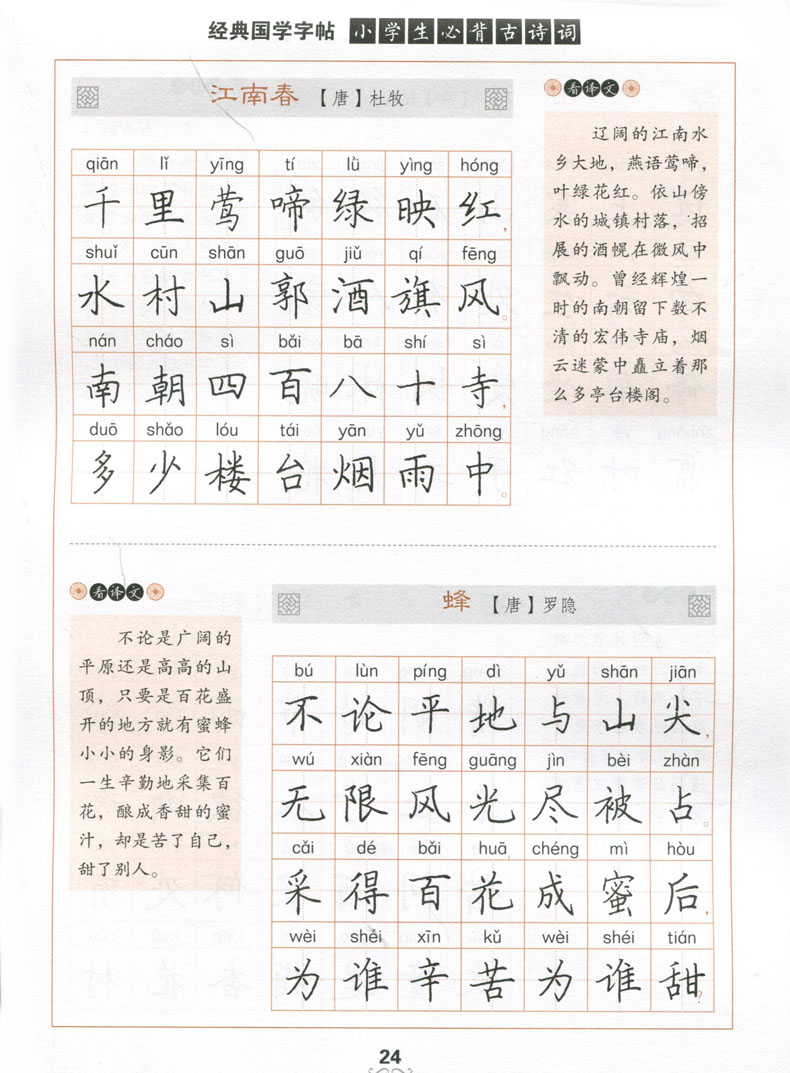 经典国学字帖 小学生必背古诗词
江南春 【唐】杜牧
qiān lǐ yīng tí lǜ yìng hóng
千里莺啼绿映红，
shuǐ cūn shān guō jiǔ qí fēng
水村山郭酒旗风。
nán cháo sì bǎi bā shí sì
南朝四百八十寺，
duō shǎo lóu tái yān yǔ zhōng
多少楼台烟雨中。
看译文
辽阔的江南水
乡大地，燕语莺啼，
叶绿花红。依山傍
水的城镇村落，招
展的酒幌在微风中
飘动。曾经辉煌一
时的南朝留下数不
清的宏伟寺庙，烟
云迷蒙中矗立着那
么多亭台楼阁。
看译文
不论是广阔的
平原还是高高的山
顶，只要是百花盛
开的地方就有蜜蜂
小小的身影。它们
一生辛勤地采集百
花，酿成香甜的蜜
汁，却是苦了自己，
甜了别人。
蜂 【唐】罗隐
bú lùn píng dì yǔ shān jiān
不论平地与山尖，
wú xiàn fēng guāng jìn bèi zhàn
无限风光尽被占。
cǎi dé bǎi huā chéng mì hòu
采得百花成蜜后，
wèi shéi xīn kǔ wèi shéi tián
为谁辛苦为谁甜？
24